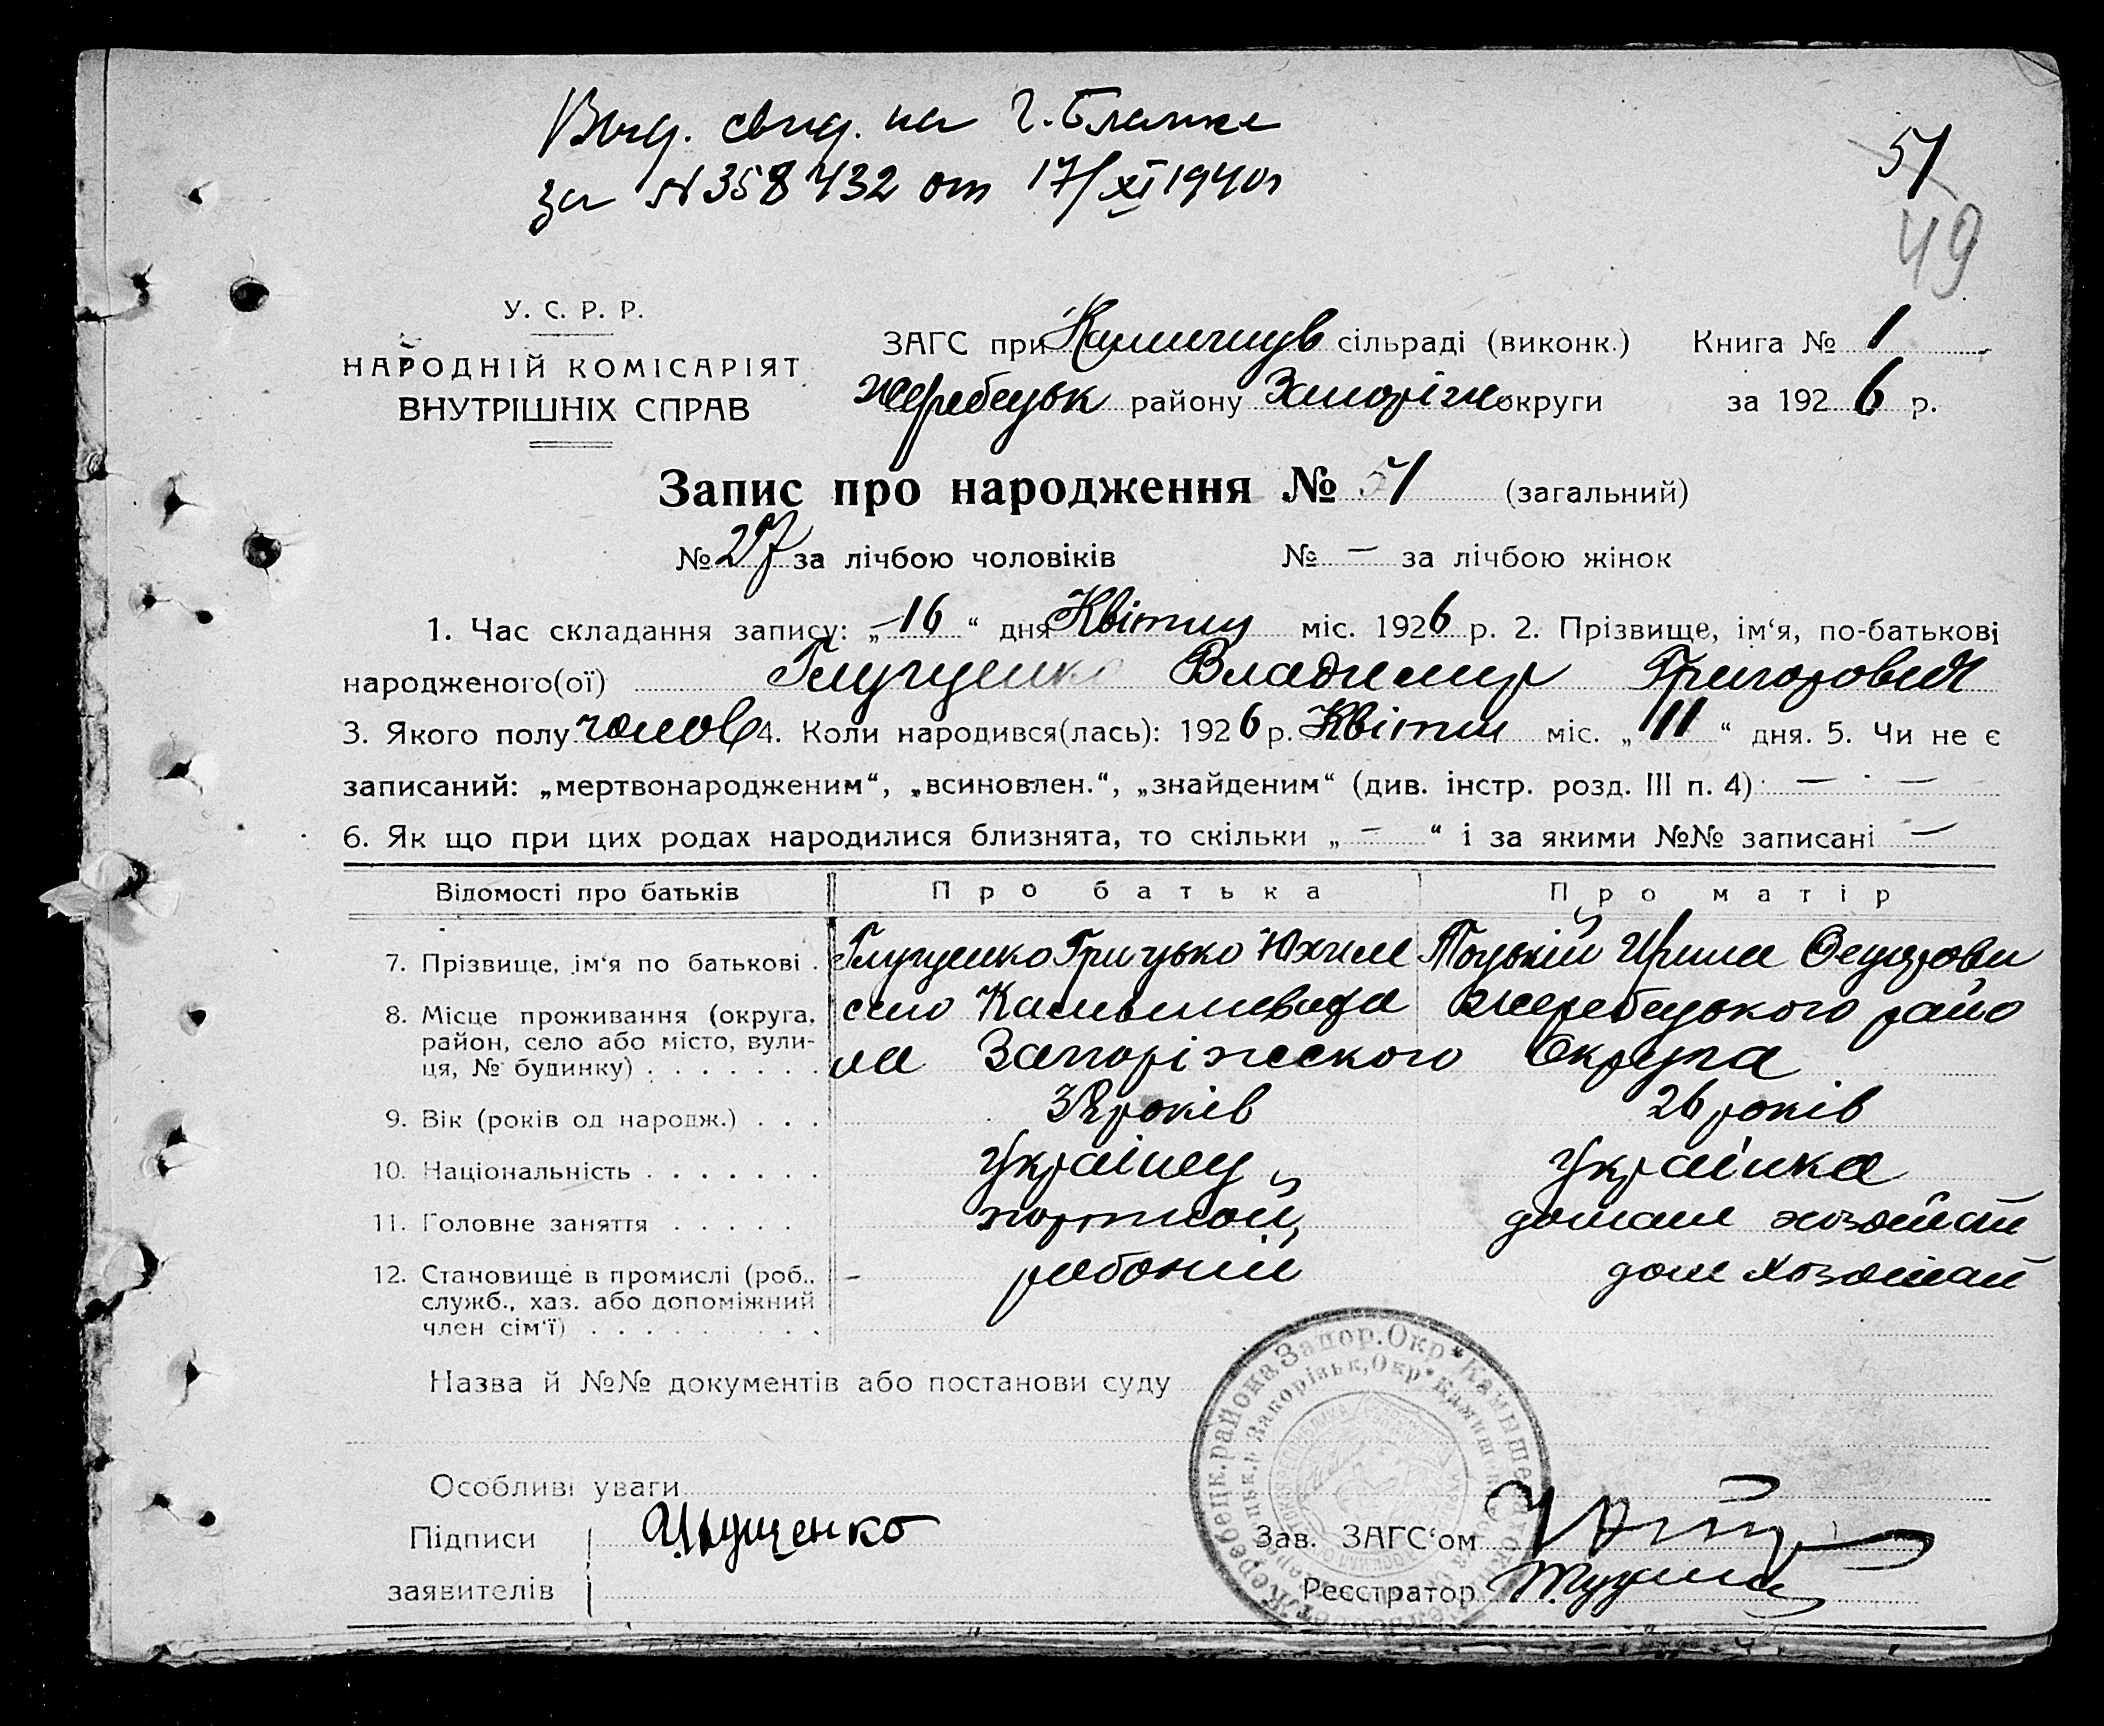 Выд. свид. на г. бланке
за № 358432 от 17/XI 1940г
51
49
У. С. Р. Р.
НАРОДНІЙ КОМІСАРІЯТ
ВНУТРІШНІХ СПРАВ
ЗАГС при Камишув сільраді (виконк.) Книга № 1
Жеребецьк району Запоріж округи за 1926 р.
Запис про народження № 51 (загальний)
№ 27 за лічбою чоловіків № — за лічбою жінок
1. Час складання запису: „16“ дня Квітня міс. 1926 р. 2. Прізвище, ім‘я, по-батькові
народженого(ої) Глущенко Владимир Григорович
3. Якого полу чолов 4. Коли народився(лась): 1926 р. Квітня міс. „11“ дня. 5. Чи не є
записаний: „мертвонародженим“, „всиновлен.“, „знайденим“ (див. інстр. розд. III п. 4) — —
6. Як що при цих родах народилися близнята, то скільки „ — “ і за якими №№ записані —
Відомості про батьків Про батька Про матір
7. Прізвище, ім‘я по батькові . Глущенко Грицько Юхим Тоцькій Ирина Федорови
8. Місце проживання (округа, село Камышеваха Жеребецького райо
район, село або місто, вули-
ця, № будинку) . . . . . . . на Запоріжского Округа
9. Вік (років од народж.) . . . років 26 років
10. Національність . . . . . . . Українец Українка
11. Головне заняття . . . . . портной домаш хозяйст
12. Становище в промислі (роб., - робочий дом хозяйст
служб., хаз. або допоміжний
член сім‘ї) . . . . . . . . .
Назва й №№ документів або постанови суду
Особливі уваги
Підписи Глущенко Зав. ЗАГС‘ом
заявителів Реєстратор
Жеребецк. района Запор. Окр * Камышеватский